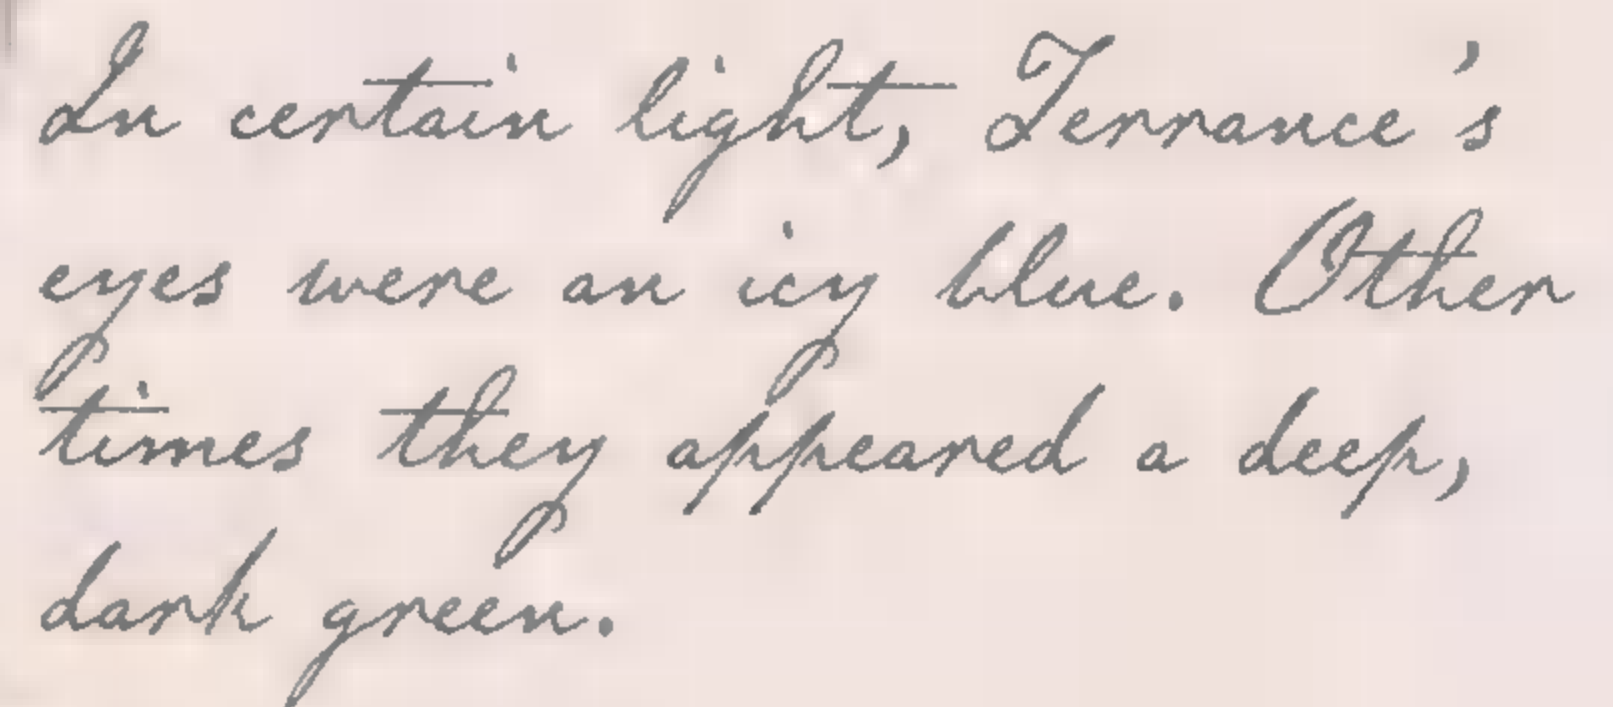 In certain light, Terrance's
eyes were an icy blue. Other
times they appeared a deep,
dark green.